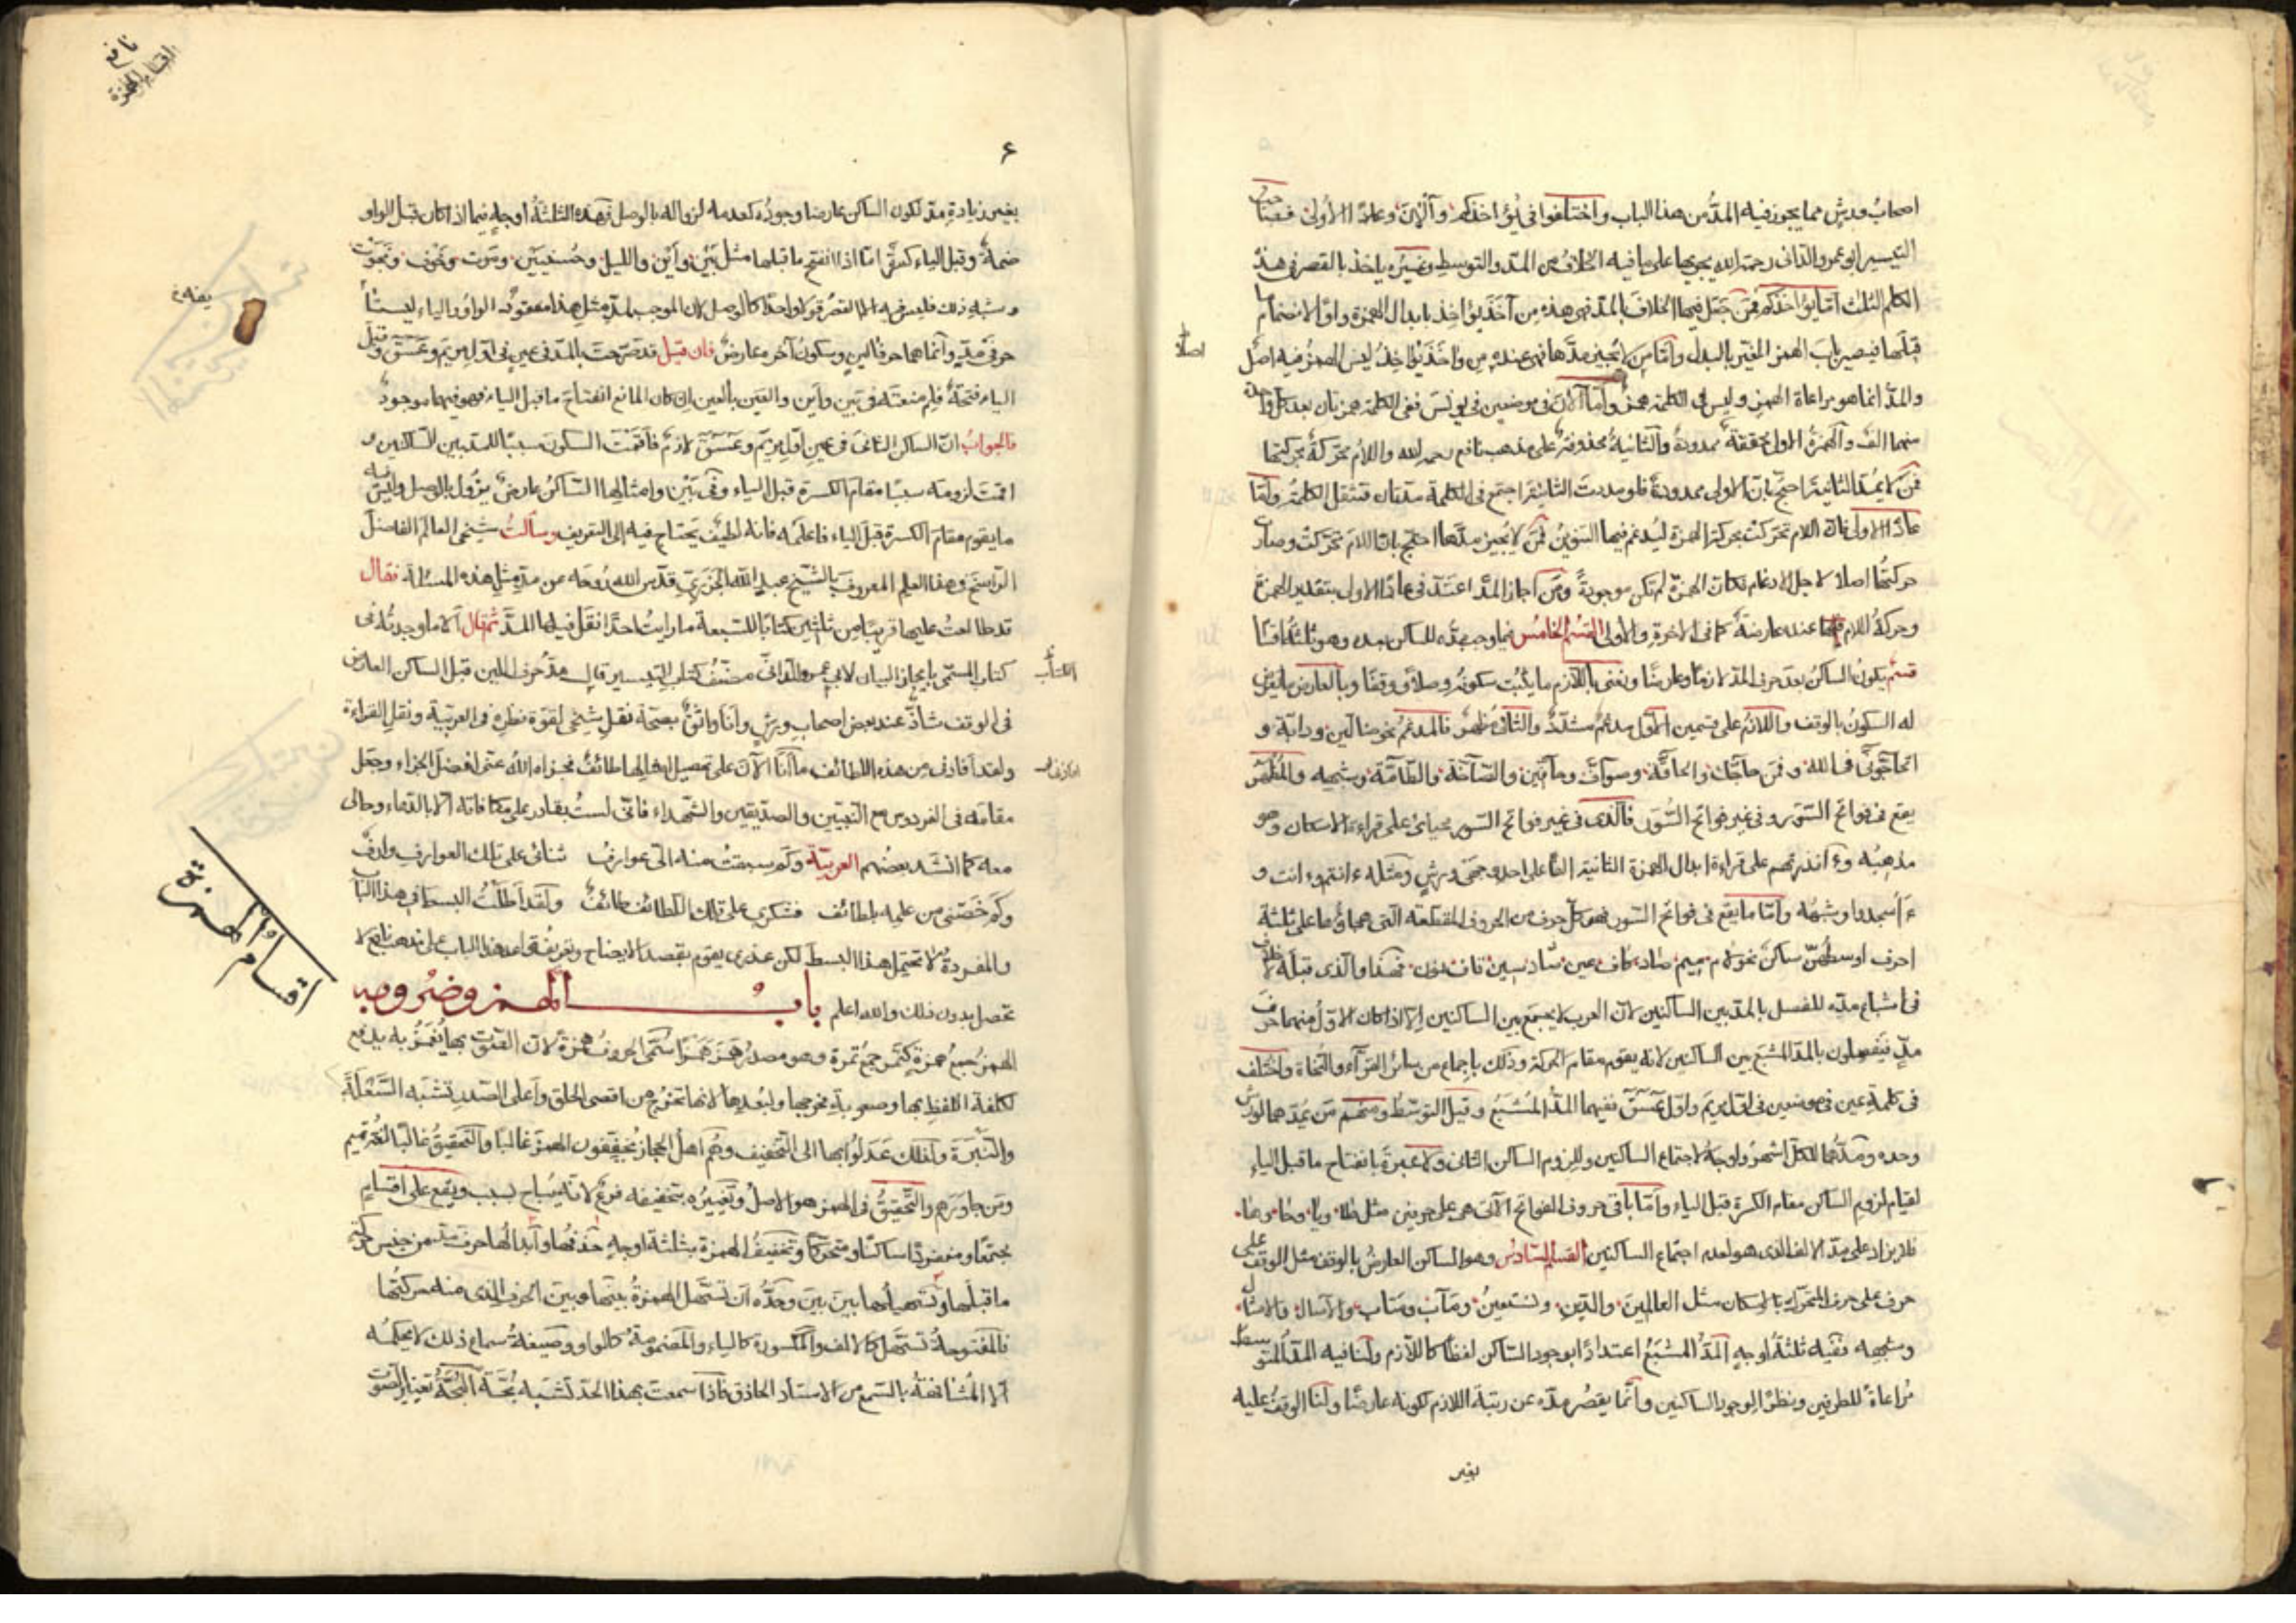 اصحابُ ورشٍ مما يجوز فيه المدُّ من هذا الباب واختلفوا في يُؤاخذكم وآلآن وعادًا الأولى فصاحب
التيسير ابو عمرو الدانى رحمه الله يجريها على ما فيه الخلاف من المدّ والتوسيط وغيرُه ياخذ بالقصر فى هذه
الكلم الثلث امّا يؤاخذكم فمَن جَعَل فيها الخلافَ بالمدّ فهى عنده مِن آخَذَ يؤاخِذ بابدال الهمزة واوًا لانضمام ما
قبلها فيصير باب الهمز المغيّر بالبدل وامّا من لا يُجيز مدّها فهى عنده من واخَذَ يُواخِذُ ليس للهمز فيه اصل
اصلًا
والمدّ انما هو مراعاة الهمز وليس فى الكلمة همزٌ وامّا آلآن فى موضعين فى يونس ففى الكلمة همزتان بعد كل واحدة
منهما الفٌ والهمزة الاولى محققة ممدودة والثانية محذوفة على مذهب نافع رحمه الله واللام محرّكة بحركتها
فمَن لا يمُدّ الثانية احتجّ بانّ الاولى ممدودة فلو مددت الثانية اجتمع فى الكلمة مدّتان فتثقل الكلمة وامّا
عادًا الاولى فانّ اللام تحركت بحركة الهمزة ليُدغم فيها التنوين فمَن لا يُجيز مدّها احتجّ بانّ اللام تحرّكت وصارت
حركتها اصلا لاجل الادغام فكانّ الهمزة لم تكن موجودةً ومَن اجاز المدّ اعتدّ فى عادًا الاولى بتقدير الهمزة
وحركةُ اللام عنده عارضة كما فى الاخرة والاولى القسم الخامس فيما وجب مدّه للساكن بعده وهو ثلثة اقسام
قسم يكون الساكن بعد حرف المدّ لازمًا وعارضًا ونعنى باللازم ما يثبت سكونُه وصلًا ووقفًا وبالعارض ما يعرض
له السكونُ بالوقف واللازمُ على قسمين الاوّل مدغم مشدّد والثانى مُظهرٌ فالمدغم نحو ضالّين ودابّة و
اتحاجّونّى فى الله وفمن حاجّك والحاقّة وصوافّ وءآمّين والصاخّة والطامّة وشبهه والمُظهر
يقع فى فواتح السّور وفى غير فواتح السُّوَر فالذى فى غير فواتح السّور محياىْ على قراءة الاسكان وهو
مذهبُه وءَانذرتهم على قراءة ابدال الهمزة الثانية الفًا على احد وجهَى ورشٍ ومثله ءانتم وءانت و
ءَاَسجد وشبهُه وامّا ما يقع فى فواتح السّور فهو كلّ حرف من الحروف المقطّعة التى هجاؤها على ثلثة
احرف اوسطهنّ ساكنٌ نحو لام ميم صاد كاف عين صاد سين قاف نون فهذا والذى قبله لا خلاف
فى اشباع مدّه للفصل بالمدّ بين الساكنين لانّ العرب لا يجمع بين الساكنين الّا اذا كان الاوّل منهما حرف
مدّ فيَفصلون بالمدّ المشبَع بين الساكنين لانه يقوم مقام الحركة وذلك باجماع من سائر القرآء والنحاة واختلف
فى كلمة عين فى موضعين فى اوّل مريم واوّل عسق ففيهما المدّ المُشبَعُ وقيل التوسّطُ ومنهم مَن يُمدّهما لورش
وحده ومدّهما للكلّ اشهرُ واوجهُ لاجتماع الساكنين وللزوم الساكن الثانى ولا عبرة بانفتاح ما قبل الياء
لقيام لزوم الساكن مقام الكسرة قبل الياء وامّا باقى حروف الفواتح الّتى هى على حرفين مثل طا ويا وحا وها
فلا يزاد على مدّ الالف الذى هو لعدم اجتماع الساكنين القسم السادس وهو الساكن العارضُ بالوقف مثل الوقف على
حرف على حرف المتحرّك بالاسكان مثل العالمين والدّين ونستعين ومَآب ومَتاب والآصال والامثال
وشبهه ففيه ثلثةُ اوجه المدُّ المُشبَعُ اعتدادًا بوجود الساكن لفظًا كاللازم ولنا فيه المدّ المتوسط
مُراعاةً للطرفين ونظرًا لوجود الساكنين وانّما يقصُر مدّه عن رتبة اللازم لكونه عارضًا ولنا الوقف عليه
بغير
نافع
اقسام الهمزة
٦
بغير زيادةِ مدّ لكون الساكن عارضا وجودُه كعدمه لزواله بالوصل فهذه الثلثةُ اوجهٍ فيما اذا كان قبل الواو
ضمةٌ وقبل الياء كسرةٌ امّا اذا انفتح ما قبلها مثل بَيْن وأَيْن والليل وحُسنيين ومَوت وخَوف وفَوت
وشبه ذلك فليس فيه الا القصرُ قولًا واحدًا كالوصل لان الموجب لمدّ مثل هذا مفقودٌ الواو والياء ليستا
حرفَى مدٍّ وانّما هما حرفا لين وسكونُ آخره عارضٌ فان قيل قد صرّحتَ بالمدّ فى عين فى اوّل مريم وعسق وقبل
الياء فتحةٌ فلِمَ منعتَه فى بَين وأين والعَين بالعين ان كان المانع انفتاحَ ما قبل الياء فهو فيهما موجودٌ
فالجوابُ انّ الساكن الثانىَ فى عين اوّل مريم وعسق لازمٌ فاقمتُ السكون سببًا للمدّ بين الساكنين و
اقمتُ لزومَه سببًا مقامَ الكسرة قبل الياء وفى بَيْن وامثالها الساكنُ عارضٌ يزُول بالوصل وليس فيه
ما يقوم مقامَ الكسرة قبل الياء فاعلمه فانه لطيفٌ يحتاج فيه الى التعريف وسألتُ شيخى العالم الفاضل
الراسخَ فى هذا العلم المعروف بالشيخ عبد الله الجزرىّ قدّس الله رُوحَه عن مدّ مثل هذه المسئلة فقال
قد طالعتُ عليها قريبًا من ثلثين كتابًا للسبعة ما رايتُ احدًا نقل فيها المدَّ ثم قال الّا ما وجدتُه فى
كتاب المسمّى بايجاز البيان لابى عمرو الدانىّ مصنّف كتاب التيسير قال مدّ حرف اللين قبل الساكن العارض
الكتاب
فى الوقف شاذّ عند بعض اصحاب ورشٍ وأنا واثقٌ بصحّة نقل شيخى لقوّة نظره فى العربيّة ونقل القراءة
ولقد أفادنى من هذه اللطائف ما أنا الآن على تحصيل امثالها طائفٌ فجزاه اللهُ عنّى افضلَ الجزاء وجَعَل
مقامَه فى الفردوس مع النبيّين والصدّيقين والشهداء فانّى لستُ بقادر على مكافاته الّا بالدّعاء وحالى
معه كما انشد بعضُهم العربيّة وكم سبقتْ منه الىّ عوارفُ ثنائى على تلك العوارف وارفٌ
وكم خَصّنى من علمه بلطائف فشكرى على تلك اللطائف طائفٌ ولقد اَطَلْتُ البسط فى هذا الباب
والمفردةُ لا تحتمل هذا البسط لكن عذرى يقوم بقصد الايضاح وتعريف قواعد هذا الباب على مذهب نافع لا
تحصل بدون ذلك والله اعلم بابُ الهمز وضروبه
اقسام الهمزة
الهمزُ جمعُ همزةٍ كتمرٍ جمعُ تمرة وهو مصدرُ هَمَزَ هَمْزًا سُمّى الحروفُ همزةً لانّ الصوت بها يُغمَزُ به يدفع
لكلفة اللفظ بها وصعوبة مخرجها ولبُعدها لانها تخرج من اقصى الحلق وأعلى الصّدر تشبه السَّعْلَةَ
والنَّبْرَةَ ولذلك عَدَلُوا بها الى التخفيف وهُم اهلُ الحجاز يُخفّفون الهمزَ غالبًا والتحقيقُ غالبًا لغةُ تميم
ومَن جاوَرَهم والتّحقيقُ فى الهمز هو الاصلُ وتغييرُه بتخفيفه فرعٌ لانّه يُباح لسبب ويقع على اقسامٍ
مجتمعًا ومنفردًا ساكنًا ومتحركًا وتخفيفُ الهمزة بثلثة اوجهٍ حذفُها وابدالُها حرفَ مدّ من جنس حركة
ما قبلها وتسهيلُها بينَ بينَ وحدُّه ان تُسهّل الهمزةُ بينها وبين الحرف الذى منه حركتُها
فالمفتوحةُ تُسَهّل كالالف والمكسورة كالياء والمضمومةُ كالواو وصيغةُ سماع ذلك لا يحكمه
الّا المُشافهةُ بالسّمع من الاستاد الحاذق فاذا سمعتَ بهذا الحدّ تشبه بُحّة البُحّةُ تغييرُ الصوت